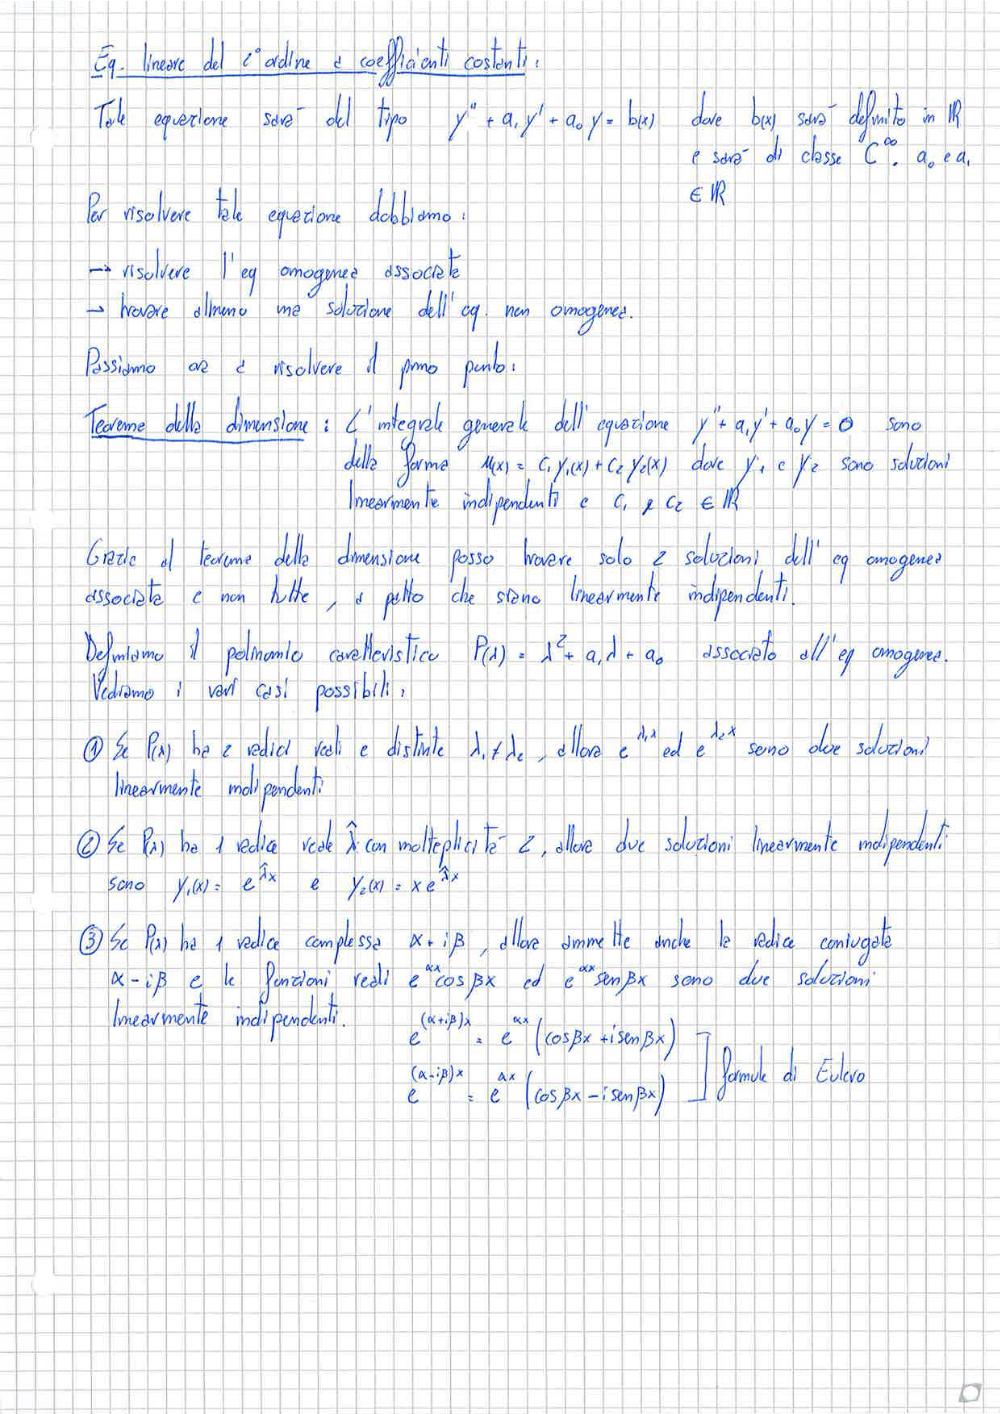 Eq. lineare del 2° ordine a coefficienti costanti:
Tale equazione sarà del tipo y'' + a₁y' + a₀y = b(x) dove b(x) sarà definito in ℝ
e sarà di classe C^∞. a₀ e a₁
∈ ℝ
Per risolvere tale equazione dobbiamo:
→ risolvere l'eq omogenea associata
→ trovare almeno una soluzione dell'eq. non omogenea.
Passiamo ora a risolvere il primo punto:
Teorema della dimensione: L'integrale generale dell'equazione y'' + a₁y' + a₀y = 0 sono
della forma u(x) = C₁y₁(x) + C₂y₂(x) dove y₁ e y₂ sono soluzioni
linearmente indipendenti e C₁ e C₂ ∈ ℝ
Grazie al teorema della dimensione posso trovare solo 2 soluzioni dell'eq omogenea
associata e non tutte, a patto che siano linearmente indipendenti.
Definiamo il polinomio caratteristico P(λ) = λ² + a₁λ + a₀ associato all'eq omogenea.
Vediamo i vari casi possibili:
① Se P(λ) ha 2 radici reali e distinte λ₁ ≠ λ₂, allora e^{λ₁x} ed e^{λ₂x} sono due soluzioni
linearmente indipendenti
② Se P(λ) ha 1 radice reale λ̂ con molteplicità 2, allora due soluzioni linearmente indipendenti
sono y₁(x) = e^{λ̂x} e y₂(x) = x e^{λ̂x}
③ Se P(λ) ha 1 radice complessa α + iβ, allora ammette anche la radice coniugata
α - iβ e le funzioni reali e^{αx} cos βx ed e^{αx} sen βx sono due soluzioni
linearmente indipendenti.
e^{(α+iβ)x} = e^{αx} (cos βx + i sen βx)
e^{(α-iβ)x} = e^{αx} (cos βx - i sen βx)
formule di Eulero